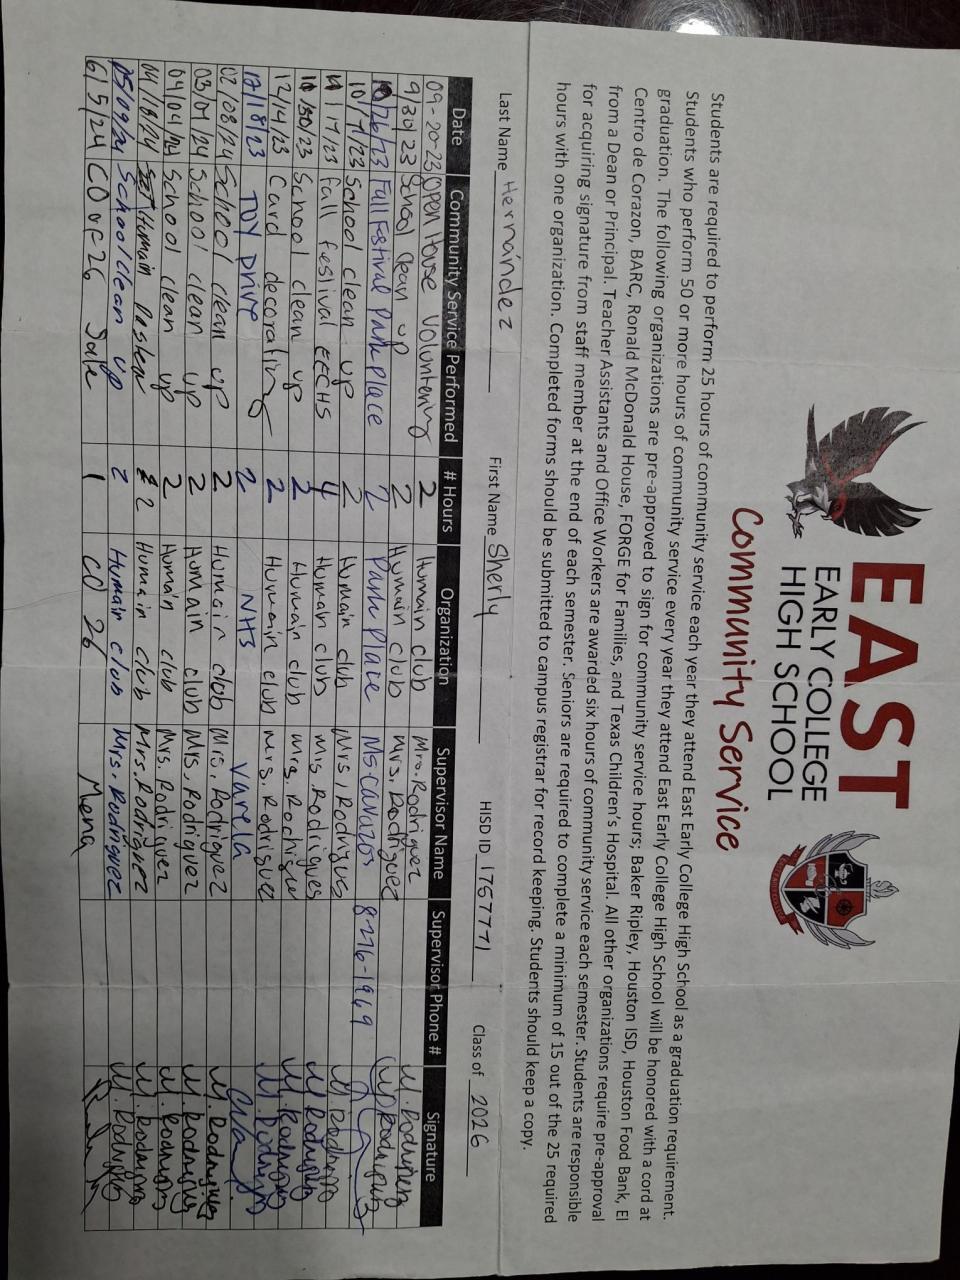 EAST
EARLY COLLEGE
HIGH SCHOOL
Community Service
Students are required to perform 25 hours of community service each year they attend East Early College High School as a graduation requirement.
Students who perform 50 or more hours of community service every year they attend East Early College High School will be honored with a cord at
graduation. The following organizations are pre-approved to sign for community service hours; Baker Ripley, Houston ISD, Houston Food Bank, El
Centro de Corazon, BARC, Ronald McDonald House, FORGE for Families, and Texas Children's Hospital. All other organizations require pre-approval
from a Dean or Principal. Teacher Assistants and Office Workers are awarded six hours of community service each semester. Students are responsible
for acquiring signature from staff member at the end of each semester. Seniors are required to complete a minimum of 15 out of the 25 required
hours with one organization. Completed forms should be submitted to campus registrar for record keeping. Students should keep a copy.
Last Name Hernández First Name Sherly HISD ID 1767771 Class of 2026
Date Community Service Performed # Hours Organization Supervisor Name Supervisor Phone # Signature
09-20-23 Open House Voluntering 2 Humain club Mrs. Rodriguez M. Rodriguez
9/30/23 School clean up 2 Humain club Mrs. Rodriguez M. Rodriguez
10/26/23 Fall Festival Park Place 2 Park Place Ms Cavazos 8-276-1969
10/7/23 School clean up 2 Humain club Mrs, Rodrigus M Rodriguez
11/17/23 Fall festival EECHS 4 Humain club Mrs. Rodrigues M Rodriguez
11/30/23 School clean up 2 Humain club Mrs. Rodrigue M. Rodriguez
12/14/23 Card decorating 2 Humain club Mrs. Rodriguez M. Rodriguez
12/18/23 TOY Drive 2 NHS Varela
02/08/24 School clean up 2 Humain club Mrs, Rodriguez M. Rodriguez
03/07/24 School clean up 2 Humain club Mrs, Rodriguez M. Rodriguez
04/04/24 School clean up 2 Humain club Mrs. Rodriguez M. Rodriguez
04/18/24 Humain 2 Humain club Mrs. Rodriguez M. Rodriguez
05/09/24 School clean up 2 Humain club Mrs. Rodriguez M. Rodriguez
6/5/24 CO of 26 Sale 1 CO 26 Mena